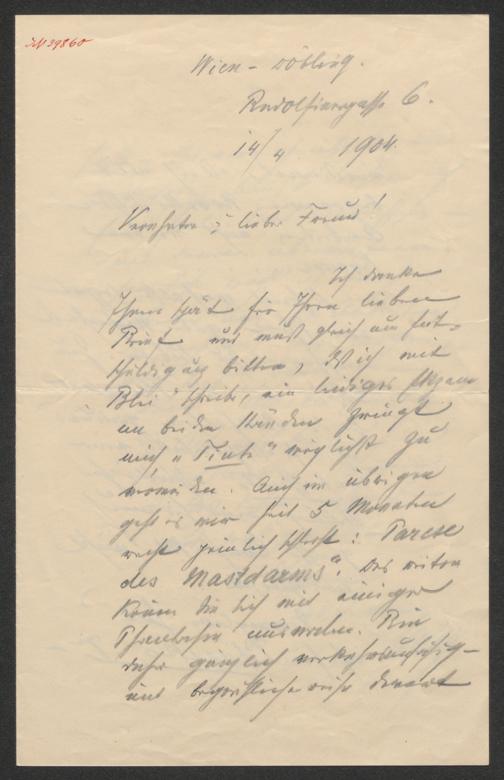 N 39860
Wien – Döbling.
Rudolfinergasse 6.
14/4 1904.
Verehrter u. lieber Freund!
Ich danke
Ihnen spät für Ihren lieben
Brief und muß gleich um Ent-
schuldigung bitten, daß ich mit
Blei schreibe, ein leidiges Ekzem
an beiden Händen zwingt
mich „Tinte" möglichst zu
vermeiden. Auch im übrigen
geht es mir seit 5 Monaten
recht ziemlich schlecht: Parese
des Mastdarms". Das weitere
können Sie sich mit einiger
Phantasie ausmalen. Bin
daher gänzlich verkehrsunfähig –
und begreiflicherweise derart